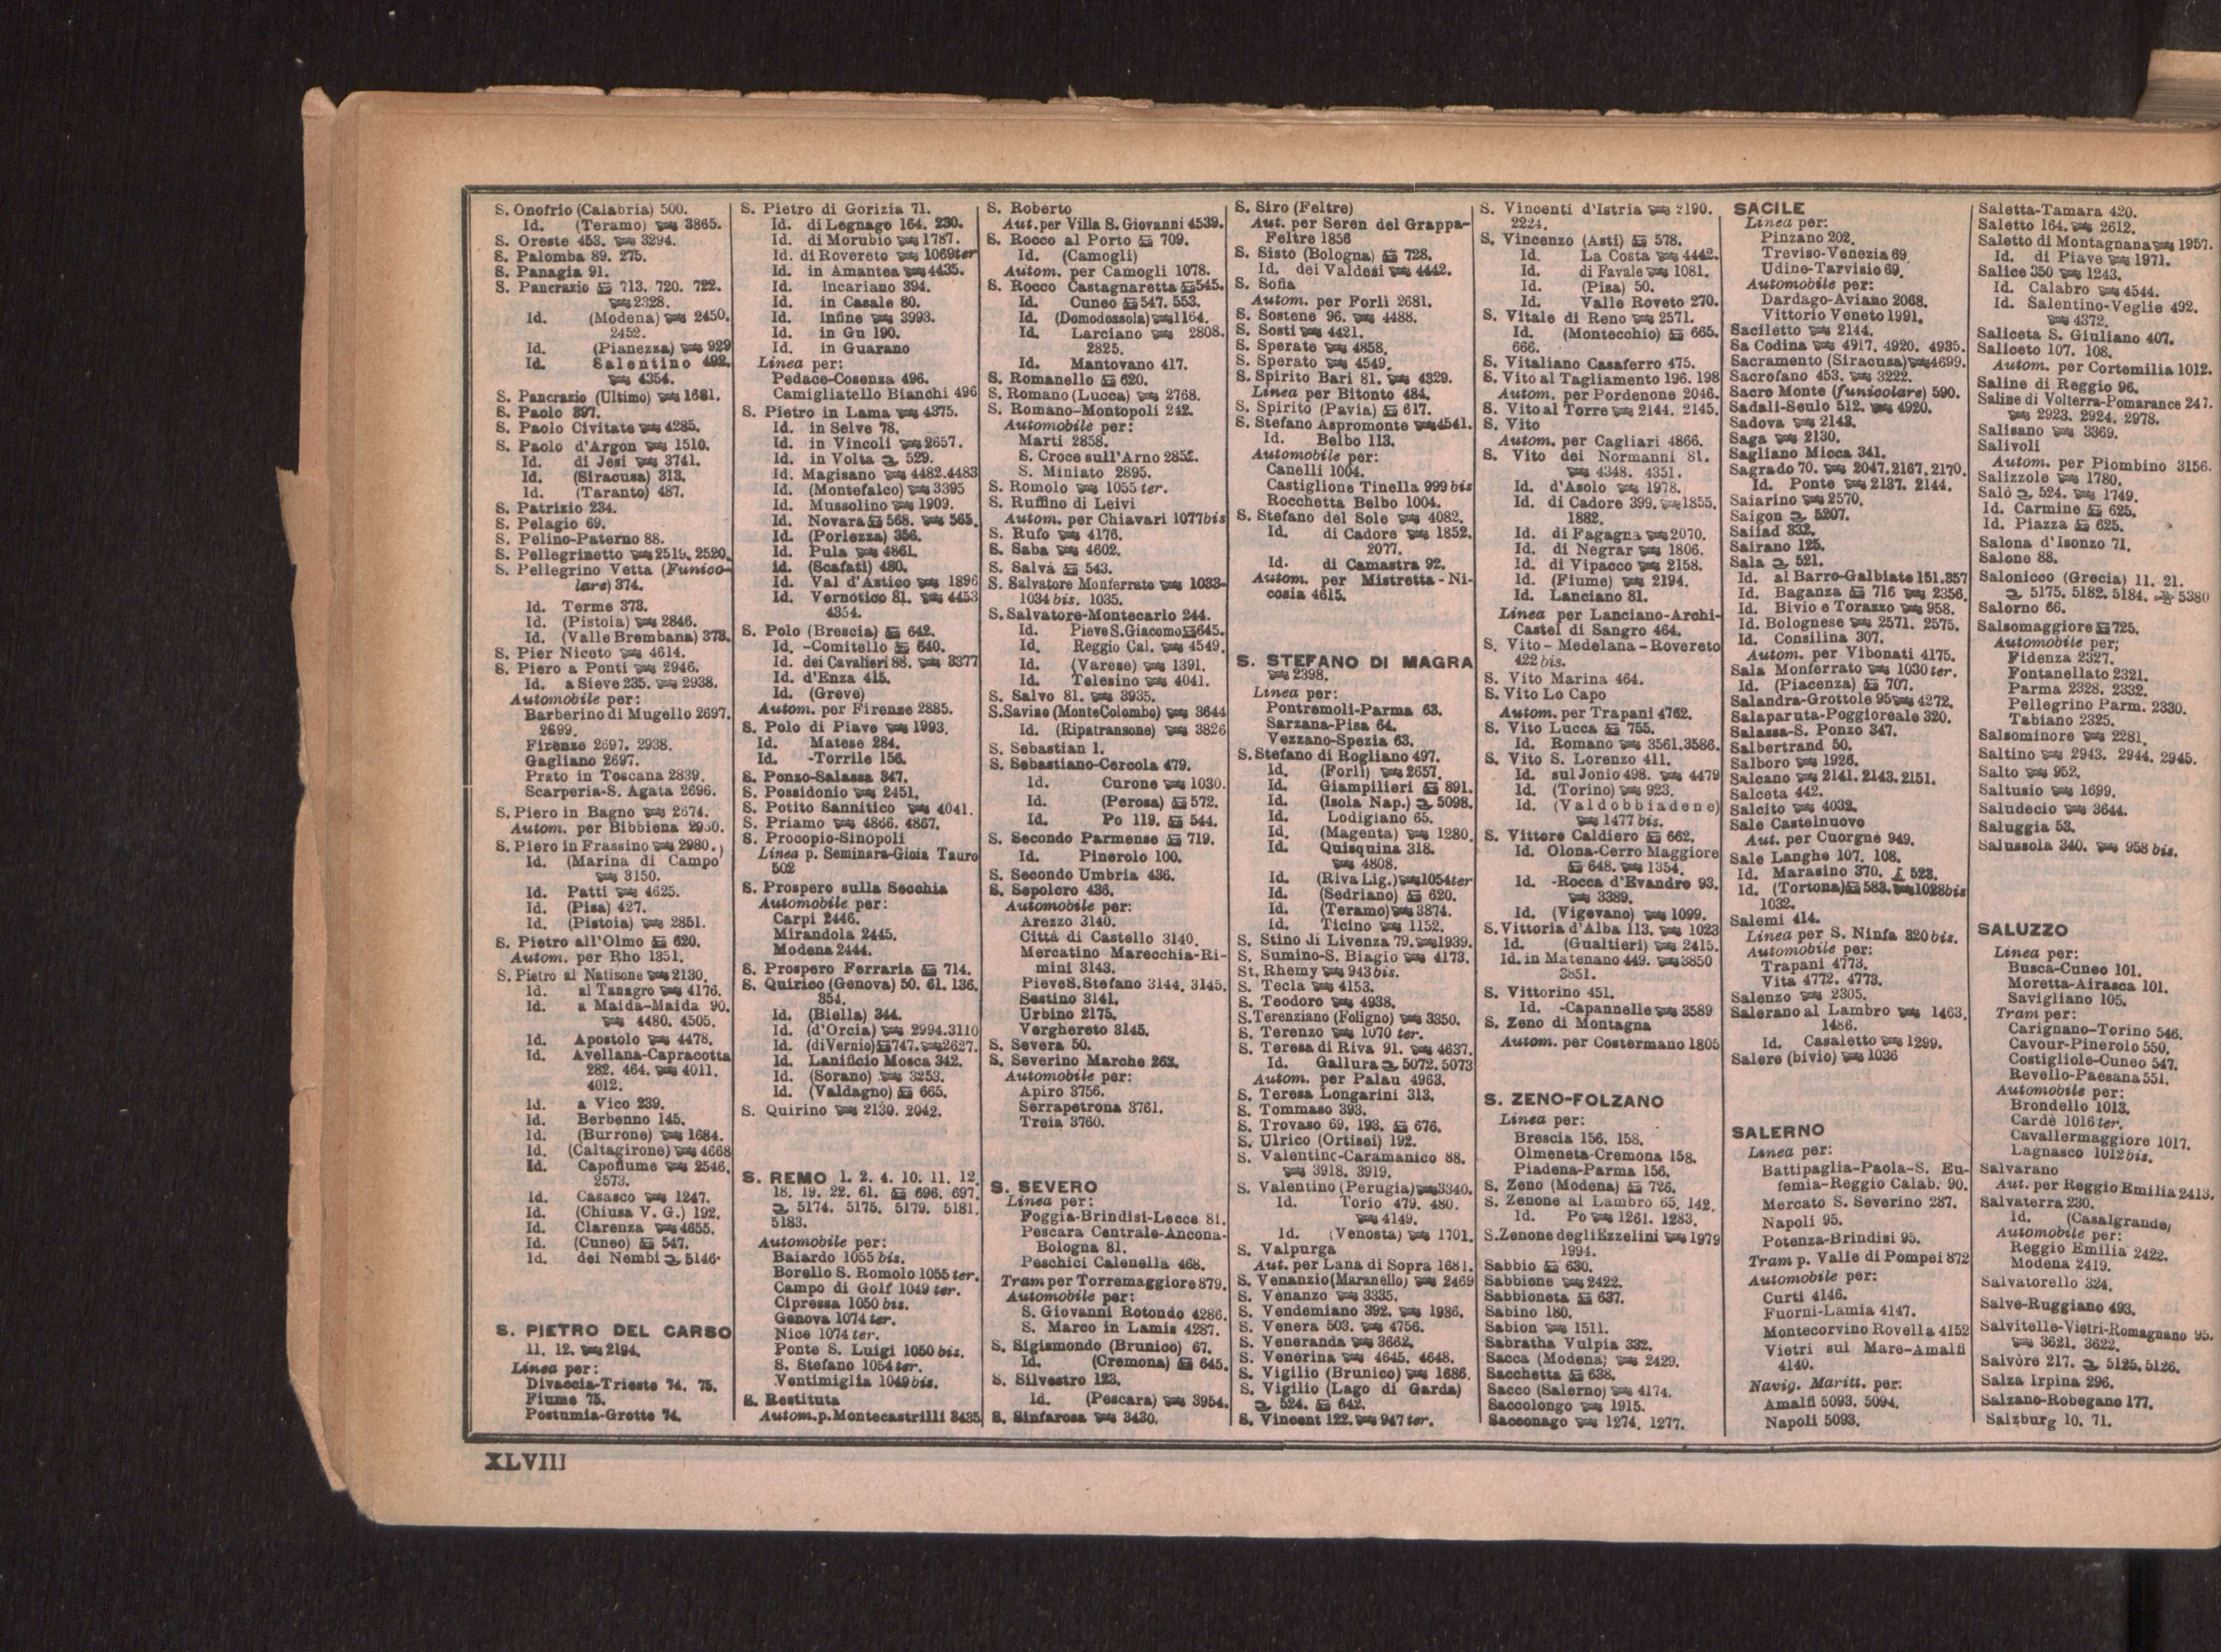 S. Onofrio (Calabria) 500.
Id. (Teramo) 3865.
S. Oreste 453. 3294.
S. Palomba 89. 275.
S. Panagia 91.
S. Pancrazio 713. 720. 722.
2328.
Id. (Modena) 2450.
2452.
Id. (Pianezza) 929
Id. Salentino 492.
4354.
S. Pancrazio (Ultimo) 1681.
S. Paolo 397.
S. Paolo Civitate 4285.
S. Paolo d'Argon 1510.
Id. di Jesi 3741.
Id. (Siracusa) 313.
Id. (Taranto) 487.
S. Patrizio 234.
S. Pelagio 69.
S. Pelino-Paterno 88.
S. Pellegrinetto 2519. 2520.
S. Pellegrino Vetta (Funico-
lare) 374.
Id. Terme 373.
Id. (Pistoia) 2846.
Id. (Valle Brembana) 373.
S. Pier Niceto 4614.
S. Piero a Ponti 2946.
Id. a Sieve 235. 2938.
Automobile per:
Barberino di Mugello 2697.
2699.
Firenze 2697. 2938.
Gagliano 2697.
Prato in Toscana 2839.
Scarperia-S. Agata 2696.
S. Piero in Bagno 2674.
Autom. per Bibbiena 2950.
S. Piero in Frassino 2980.
Id. (Marina di Campo
3150.
Id. Patti 4625.
Id. (Pisa) 427.
Id. (Pistoia) 2851.
S. Pietro all'Olmo 620.
Autom. per Rho 1351.
S. Pietro al Natisone 2130.
Id. al Tanagro 4176.
Id. a Maida-Maida 90.
4480. 4505.
Id. Apostolo 4478.
Id. Avellana-Capracotta
282. 464. 4011.
4012.
Id. a Vico 239.
Id. Berbenno 145.
Id. (Burrone) 1684.
Id. (Caltagirone) 4668
Id. Capofiume 2546.
2573.
Id. Casasco 1247.
Id. (Chiusa V. G.) 192.
Id. Clarenza 4655.
Id. (Cuneo) 547.
Id. dei Nembi 5146.
S. PIETRO DEL CARSO
11. 12. 2194.
Linea per:
Divaccia-Trieste 74. 75.
Fiume 75.
Postumia-Grotte 74.
S. Pietro di Gorizia 71.
Id. di Legnago 164. 230.
Id. di Morubio 1787.
Id. di Rovereto 1069ter
Id. in Amantea 4435.
Id. Incariano 394.
Id. in Casale 80.
Id. Infine 3993.
Id. in Gu 190.
Id. in Guarano
Linea per:
Pedace-Cosenza 496.
Camigliatello Bianchi 496
S. Pietro in Lama 4375.
Id. in Selve 78.
Id. in Vincoli 2657.
Id. in Volta 529.
Id. Magisano 4482.4483
Id. (Montefalco) 3395
Id. Mussolino 1909.
Id. Novara 568. 565.
Id. (Porlezza) 356.
Id. Pula 4861.
Id. (Scafati) 480.
Id. Val d'Astico 1896
Id. Vernotico 81. 4453
4354.
S. Polo (Brescia) 642.
Id. -Comitello 640.
Id. dei Cavalieri 88. 3377
Id. d'Enza 415.
Id. (Greve)
Autom. per Firenze 2885.
S. Polo di Piave 1993.
Id. Matese 284.
Id. -Torrile 156.
S. Ponzo-Salassa 347.
S. Possidonio 2451.
S. Potito Sannitico 4041.
S. Priamo 4866. 4867.
S. Procopio-Sinopoli
Linea p. Seminara-Gioia Tauro
502
S. Prospero sulla Secchia
Automobile per:
Carpi 2446.
Mirandola 2445.
Modena 2444.
S. Prospero Ferraria 714.
S. Quirico (Genova) 50. 61. 136.
354.
Id. (Biella) 344.
Id. (d'Orcia) 2994.3110
Id. (di Vernio) 747. 2627.
Id. Lanificio Mosca 342.
Id. (Sorano) 3253.
Id. (Valdagno) 665.
S. Quirino 2139. 2042.
S. REMO 1. 2. 4. 10. 11. 12.
18. 19. 22. 61. 696. 697.
5174. 5175. 5179. 5181.
5183.
Automobile per:
Baiardo 1055 bis.
Borello S. Romolo 1055 ter.
Campo di Golf 1049 ter.
Cipressa 1050 bis.
Genova 1074 ter.
Nice 1074 ter.
Ponte S. Luigi 1050 bis.
S. Stefano 1054 ter.
Ventimiglia 1049 bis.
S. Restituta
Autom. p. Montecastrilli 3435
S. Roberto
Aut. per Villa S. Giovanni 4539.
S. Rocco al Porto 709.
Id. (Camogli)
Autom. per Camogli 1078.
S. Rocco Castagnaretta 545.
Id. Cuneo 547. 553.
Id. (Domodossola) 1164.
Id. Larciano 2808.
2825.
Id. Mantovano 417.
S. Romanello 620.
S. Romano (Lucca) 2768.
S. Romano-Montopoli 242.
Automobile per:
Marti 2858.
S. Croce sull'Arno 2852.
S. Miniato 2895.
S. Romolo 1055 ter.
S. Ruffino di Leivi
Autom. per Chiavari 1077bis
S. Rufo 4176.
S. Saba 4602.
S. Salvà 543.
S. Salvatore Monferrato 1033-
1034 bis. 1035.
S. Salvatore-Montecarlo 244.
Id. Pieve S. Giacomo 645.
Id. Reggio Cal. 4549.
Id. (Varese) 1391.
Id. Telesino 4041.
S. Salvo 81. 3935.
S. Savino (Monte Colombo) 3644
Id. (Ripatransone) 3826
S. Sebastian 1.
S. Sebastiano-Cercola 479.
Id. Curone 1030.
Id. (Perosa) 572.
Id. Po 119. 544.
S. Secondo Parmense 719.
Id. Pinerolo 100.
S. Secondo Umbria 436.
S. Sepolcro 436.
Automobile per:
Arezzo 3140.
Città di Castello 3140.
Mercatino Marecchia-Ri-
mini 3143.
Pieve S. Stefano 3144. 3145.
Sestino 3141.
Urbino 2175.
Verghereto 3145.
S. Severa 50.
S. Severino Marche 262.
Automobile per:
Apiro 3756.
Serrapetrona 3761.
Treia 3760.
S. SEVERO
Linea per:
Foggia-Brindisi-Lecce 81.
Pescara Centrale-Ancona-
Bologna 81.
Peschici Calenella 468.
Tram per Torremaggiore 879.
Automobile per:
S. Giovanni Rotondo 4286.
S. Marco in Lamis 4287.
S. Sigismondo (Brunico) 67.
Id. (Cremona) 645.
S. Silvestro 123.
Id. (Pescara) 3954.
S. Sinfarosa 3430.
S. Siro (Feltre)
Aut. per Seren del Grappa-
Feltre 1856
S. Sisto (Bologna) 728.
Id. dei Valdesi 4442.
S. Sofia
Autom. per Forlì 2681.
S. Sostene 96. 4488.
S. Sosti 4421.
S. Sperate 4858.
S. Sperato 4549.
S. Spirito Bari 81. 4329.
Linea per Bitonto 484.
S. Spirito (Pavia) 617.
S. Stefano Aspromonte 4541.
Id. Belbo 113.
Automobile per:
Canelli 1004.
Castiglione Tinella 999 bis
Rocchetta Belbo 1004.
S. Stefano del Sole 4082.
Id. di Cadore 1852.
2077.
Id. di Camastra 92.
Autom. per Mistretta-Ni-
cosia 4615.
S. STEFANO DI MAGRA
2398.
Linea per:
Pontremoli-Parma 63.
Sarzana-Pisa 64.
Vezzano-Spezia 63.
S. Stefano di Rogliano 497.
Id. (Forlì) 2657.
Id. Giampilieri 891.
Id. (Isola Nap.) 5098.
Id. Lodigiano 65.
Id. (Magenta) 1280.
Id. Quisquina 318.
4808.
Id. (Riva Lig.) 1054ter
Id. (Sedriano) 620.
Id. (Teramo) 3874.
Id. Ticino 1152.
S. Stino di Livenza 79. 1939.
S. Sumino-S. Biagio 4173.
St. Rhemy 943 bis.
S. Tecla 4153.
S. Teodoro 4938.
S. Terenziano (Foligno) 3350.
S. Terenzo 1070 ter.
S. Teresa di Riva 91. 4637.
Id. Gallura 5072. 5073
Autom. per Palau 4963.
S. Teresa Longarini 313.
S. Tommaso 393.
S. Trovaso 69. 193. 676.
S. Ulrico (Ortisei) 192.
S. Valentino-Caramanico 88.
3918. 3919.
S. Valentino (Perugia) 3340.
Id. Torio 479. 480.
4149.
Id. (Venosta) 1701.
S. Valpurga
Aut. per Lana di Sopra 1681.
S. Venanzio (Maranello) 2469
S. Venanzo 3335.
S. Vendemiano 392. 1986.
S. Venera 503. 4756.
S. Veneranda 3662.
S. Venerina 4645. 4648.
S. Vigilio (Brunico) 1686.
S. Vigilio (Lago di Garda)
524. 642.
S. Vincent 122. 947 ter.
S. Vincenti d'Istria 2190.
2224.
S. Vincenzo (Asti) 578.
Id. La Costa 4442.
Id. di Favale 1081.
Id. (Pisa) 50.
Id. Valle Roveto 270.
S. Vitale di Reno 2571.
Id. (Montecchio) 665.
666.
S. Vitaliano Casaferro 475.
S. Vito al Tagliamento 196. 198
Autom. per Pordenone 2046.
S. Vito al Torre 2144. 2145.
S. Vito
Autom. per Cagliari 4866.
S. Vito dei Normanni 81.
4348. 4351.
Id. d'Asolo 1978.
Id. di Cadore 399. 1855.
1882.
Id. di Fagagna 2070.
Id. di Negrar 1806.
Id. di Vipacco 2158.
Id. (Fiume) 2194.
Id. Lanciano 81.
Linea per Lanciano-Archi-
Castel di Sangro 464.
S. Vito-Medelana-Rovereto
422 bis.
S. Vito Marina 464.
S. Vito Lo Capo
Autom. per Trapani 4762.
S. Vito Lucca 755.
Id. Romano 3561.3586.
S. Vito S. Lorenzo 411.
Id. sul Jonio 498. 4479
Id. (Torino) 923.
Id. (Valdobbiadene)
1477 bis.
S. Vittore Caldiero 662.
Id. Olona-Cerro Maggiore
648. 1354.
Id. -Rocca d'Evandro 93.
3389.
Id. (Vigevano) 1099.
S. Vittoria d'Alba 113. 1023
Id. (Gualtieri) 2415.
Id. in Matenano 449. 3850
3851.
S. Vittorino 451.
Id. -Capannelle 3589
S. Zeno di Montagna
Autom. per Costermano 1805
S. ZENO-FOLZANO
Linea per:
Brescia 156. 158.
Olmeneta-Cremona 158.
Piadena-Parma 156.
S. Zeno (Modena) 726.
S. Zenone al Lambro 65. 142.
Id. Po 1261. 1283.
S. Zenone degli Ezzelini 1979
1994.
Sabbio 630.
Sabbione 2422.
Sabbioneta 637.
Sabino 180.
Sabion 1511.
Sabratha Vulpia 332.
Sacca (Modena) 2429.
Sacchetta 638.
Sacco (Salerno) 4174.
Saccolongo 1915.
Sacconago 1274. 1277.
SACILE
Linea per:
Pinzano 202.
Treviso-Venezia 69
Udine-Tarvisio 69.
Automobile per:
Dardago-Aviano 2068.
Vittorio Veneto 1991.
Saciletto 2144.
Sa Codina 4917. 4920. 4935.
Sacramento (Siracusa) 4699.
Sacrofano 453. 3222.
Sacro Monte (funicolare) 590.
Sadali-Seulo 512. 4920.
Sadova 2143.
Saga 2130.
Sagliano Micca 341.
Sagrado 70. 2047.2167.2170.
Id. Ponte 2137. 2144.
Saiarino 2570.
Saigon 5207.
Saiiad 332.
Sairano 125.
Sala 521.
Id. al Barro-Galbiate 151.357
Id. Baganza 716 2356.
Id. Bivio e Torazzo 958.
Id. Bolognese 2571. 2575.
Id. Consilina 307.
Autom. per Vibonati 4175.
Sala Monferrato 1030 ter.
Id. (Piacenza) 707.
Salandra-Grottole 95 4272.
Salaparuta-Poggioreale 320.
Salassa-S. Ponzo 347.
Salbertrand 50.
Salboro 1926.
Salcano 2141. 2143. 2151.
Salceta 442.
Salcito 4032.
Sale Castelnuovo
Aut. per Cuorgnè 949.
Sale Langhe 107. 108.
Id. Marasino 370. 523.
Id. (Tortona) 583. 1028bis
1032.
Salemi 414.
Linea per S. Ninfa 320 bis.
Automobile per:
Trapani 4773.
Vita 4772. 4773.
Salenzo 2305.
Salerano al Lambro 1463.
1486.
Id. Casaletto 1299.
Salere (bivio) 1036
SALERNO
Linea per:
Battipaglia-Paola-S. Eu-
femia-Reggio Calab. 90.
Mercato S. Severino 287.
Napoli 95.
Potenza-Brindisi 95.
Tram p. Valle di Pompei 872
Automobile per:
Curti 4146.
Fuorni-Lamia 4147.
Montecorvino Rovella 4152
Vietri sul Mare-Amalfi
4140.
Navig. Maritt. per:
Amalfi 5093. 5094.
Napoli 5093.
Saletta-Tamara 420.
Saletto 164. 2612.
Saletto di Montagnana 1957.
Id. di Piave 1971.
Salice 350 1243.
Id. Calabro 4544.
Id. Salentino-Veglie 492.
4372.
Saliceta S. Giuliano 407.
Saliceto 107. 108.
Autom. per Cortemilia 1012.
Saline di Reggio 96.
Saline di Volterra-Pomarance 247.
2923. 2924. 2978.
Salisano 3369.
Salivoli
Autom. per Piombino 3156.
Salizzole 1780.
Salò 524. 1749.
Id. Carmine 625.
Id. Piazza 625.
Salona d'Isonzo 71.
Salone 88.
Salonicco (Grecia) 11. 21.
5175. 5182. 5184. 5380
Salorno 66.
Salsomaggiore 725.
Automobile per;
Fidenza 2327.
Fontanellato 2321.
Parma 2328. 2332.
Pellegrino Parm. 2330.
Tabiano 2325.
Salsominore 2281.
Saltino 2943. 2944. 2945.
Salto 952.
Saltusio 1699.
Saludecio 3644.
Saluggia 53.
Salussola 340. 958 bis.
SALUZZO
Linea per:
Busca-Cuneo 101.
Moretta-Airasca 101.
Savigliano 105.
Tram per:
Carignano-Torino 546.
Cavour-Pinerolo 550.
Costigliole-Cuneo 547.
Revello-Paesana 551.
Automobile per:
Brondello 1013.
Cardè 1016 ter.
Cavallermaggiore 1017.
Lagnasco 1012 bis.
Salvarano
Aut. per Reggio Emilia 2413.
Salvaterra 230.
Id. (Casalgrande)
Automobile per:
Reggio Emilia 2422.
Modena 2419.
Salvatorello 324.
Salve-Ruggiano 493.
Salvitelle-Vietri-Romagnano 95.
3621. 3622.
Salvòre 217. 5125. 5126.
Salza Irpina 296.
Salzano-Robegano 177.
Salzburg 10. 71.
XLVIII